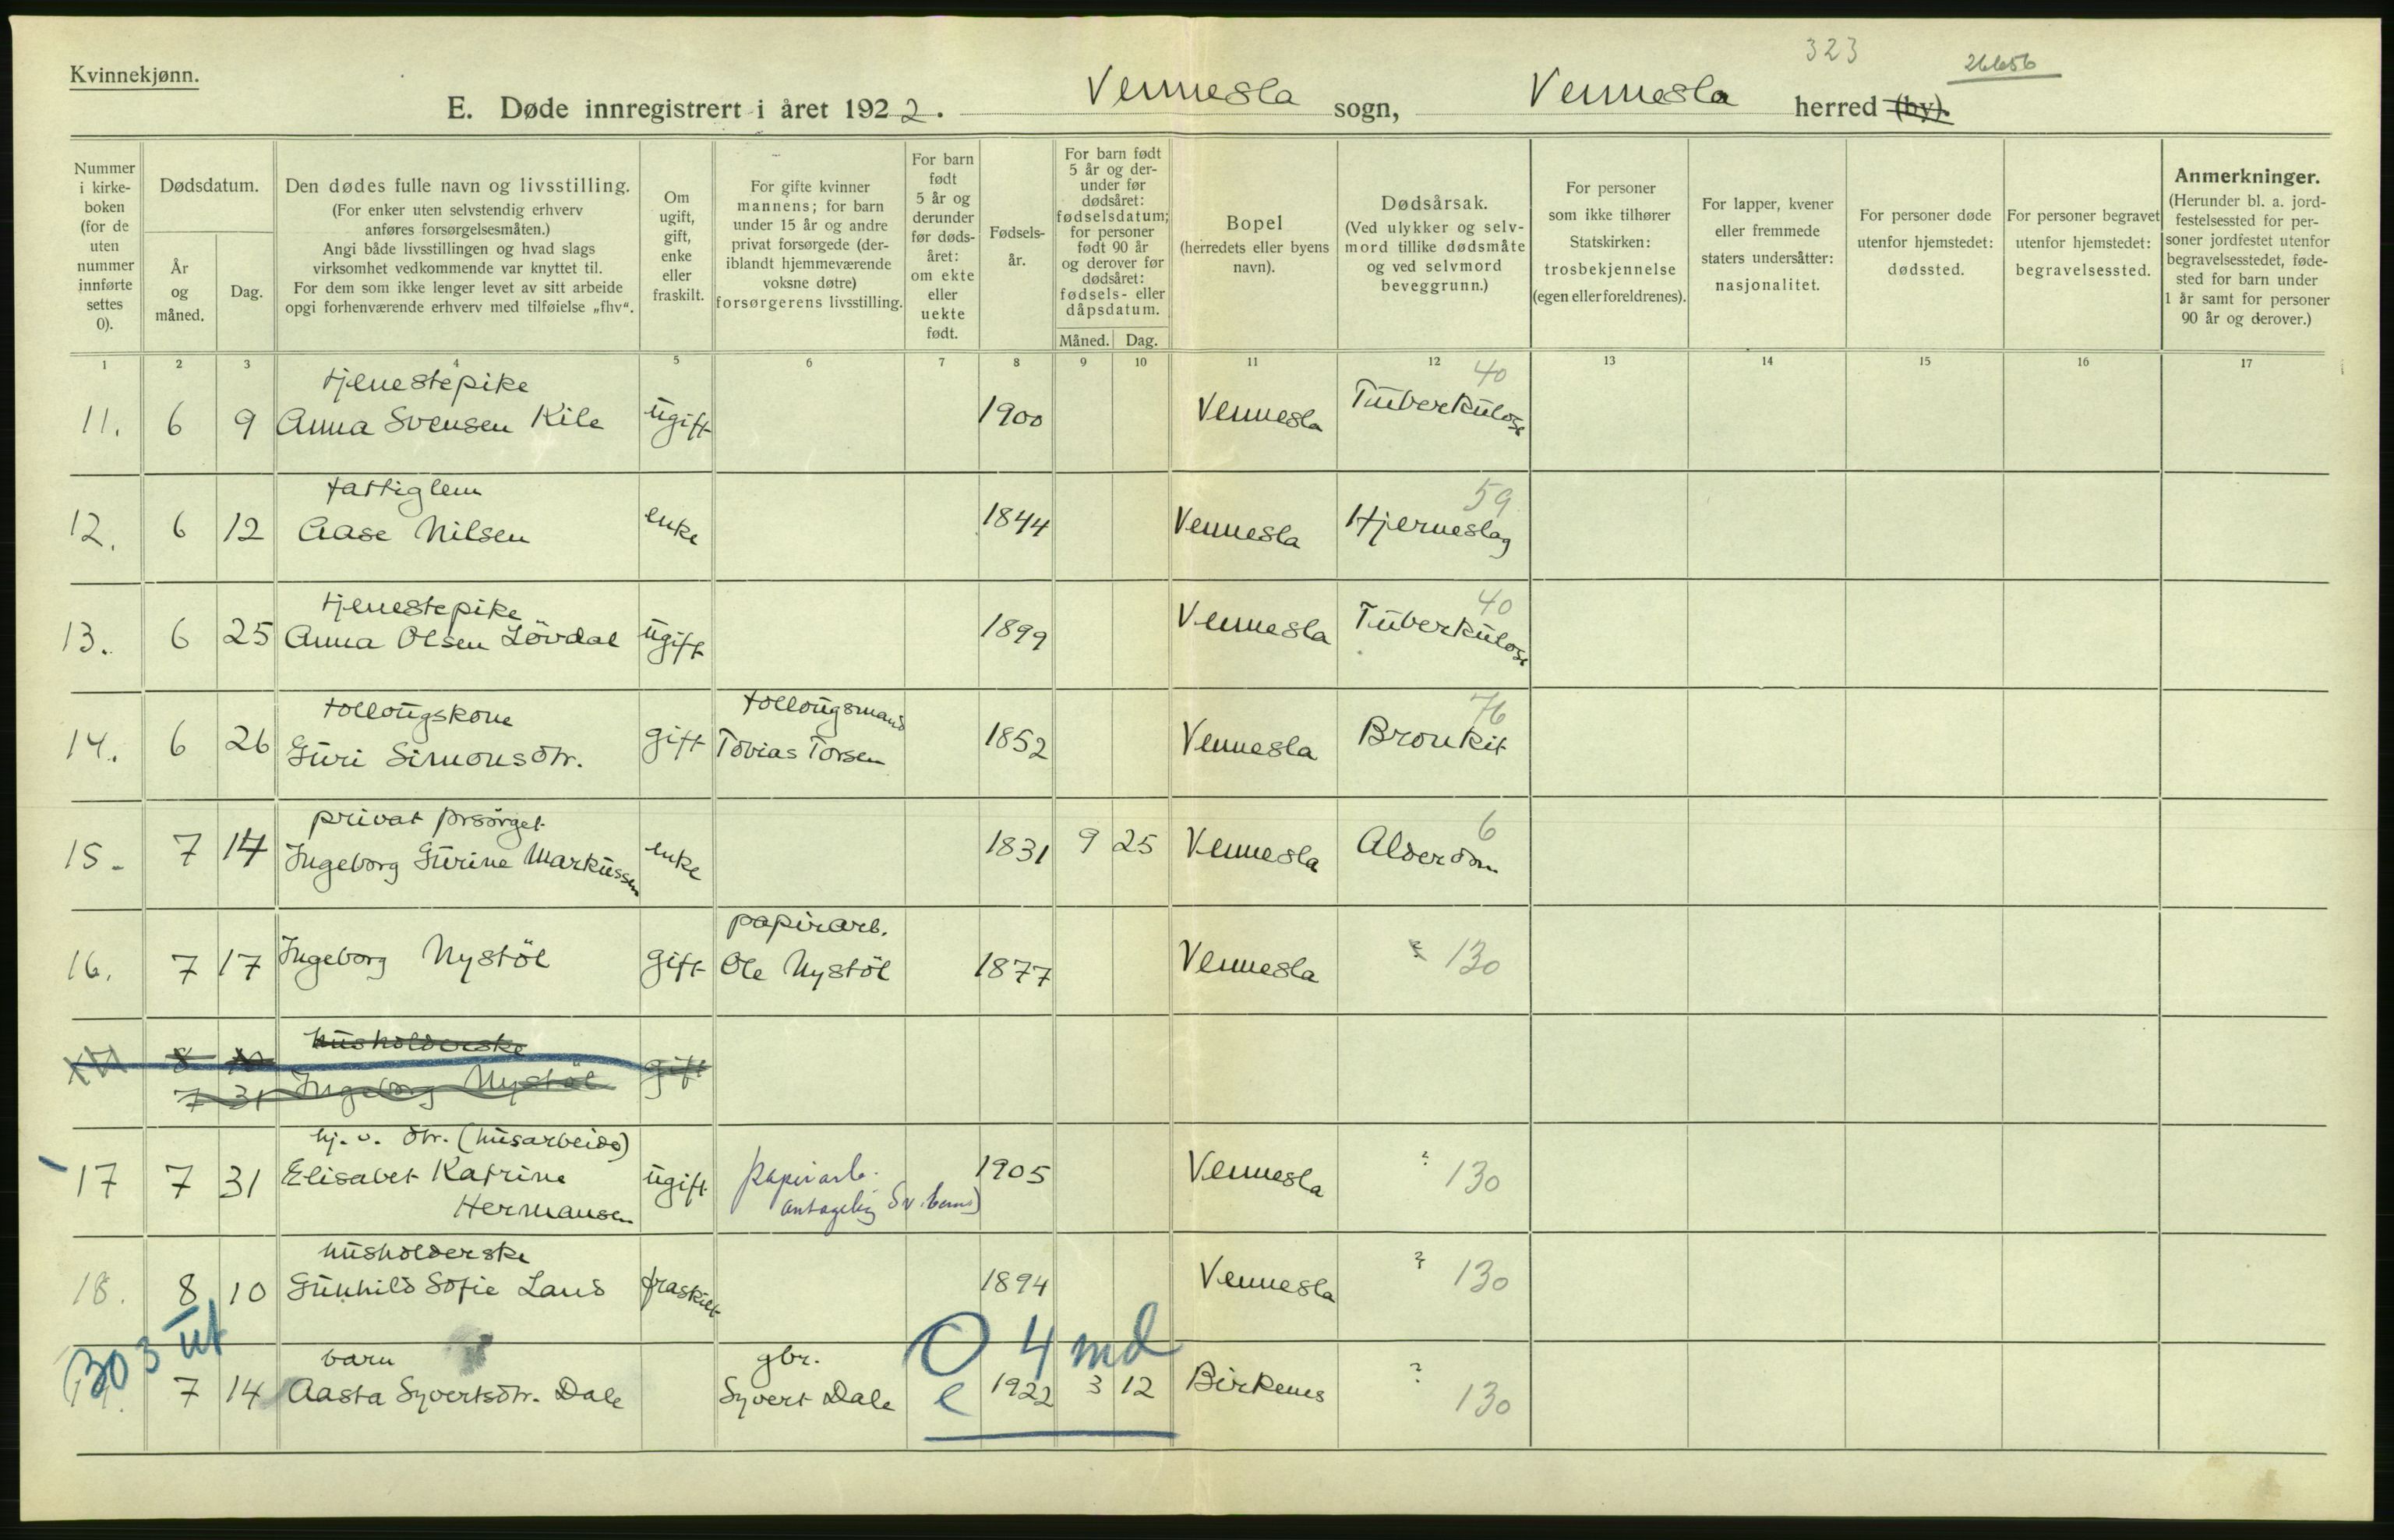 Kvinnekjønn.
323
26656
E. Døde innregistrert i året 1922. Vennesla sogn, Vennesla herred (by).
Nummer i kirkeboken (for de uten nummer innførte settes 0).
Dødsdatum.
År og måned.
Dag.
Den dødes fulle navn og livsstilling.
(For enker uten selvstendig erhverv anføres forsørgelsesmåten.)
Angi både livsstillingen og hvad slags virksomhet vedkommende var knyttet til.
For dem som ikke lenger levet av sitt arbeide opgi forhenværende erhverv med tilføielse „fhv“.
Om ugift, gift, enke eller fraskilt.
For gifte kvinner mannens; for barn under 15 år og andre privat forsørgede (deriblandt hjemmeværende voksne døtre) forsørgerens livsstilling.
For barn født 5 år og derunder før dødsåret: om ekte eller uekte født.
Fødselsår.
For barn født 5 år og derunder før dødsåret: fødselsdatum; for personer født 90 år og derover før dødsåret: fødsels- eller dåpsdatum.
Måned. Dag.
Bopel (herredets eller byens navn).
Dødsårsak. (Ved ulykker og selvmord tillike dødsmåte og ved selvmord beveggrunn.)
For personer som ikke tilhører Statskirken: trosbekjennelse (egen eller foreldrenes).
For lapper, kvener eller fremmede staters undersåtter: nasjonalitet.
For personer døde utenfor hjemstedet: dødssted.
For personer begravet utenfor hjemstedet: begravelsessted.
Anmerkninger. (Herunder bl. a. jordfestelsessted for personer jordfestet utenfor begravelsesstedet, fødested for barn under 1 år samt for personer 90 år og derover.)
1 2 3 4 5 6 7 8 9 10 11 12 13 14 15 16 17
tjenestepike 40
11. 6 9 Anna Svensen Kile ugift 1900 Vennesla Tuberkulose
fattiglem 59
12. 6 12 Aase Nilsen enke 1844 Vennesla Hjerneslag
tjenestepike 40
13. 6 25 Anna Olsen Lövdal ugift 1899 Vennesla Tuberkulose
follougskone follougsmand 76
14. 6 26 Guri Simonsdtr. gift Tobias Torsen 1852 Vennesla Bronkit
privat forsörget 6
15. 7 14 Ingeborg Gurine Markussen enke 1831 9 25 Vennesla Alderdom
papirarb.
16. 7 17 Ingeborg Nystöl gift Ole Nystöl 1877 Vennesla ? 130
8 husholderske
7 31 Ingeborg Nystöl gift
hj. v. dtr. (husarbeide)
17 7 31 Elisabet Katrine Hermansen ugift papirarb. antagelig 1905 Vennesla ? 130
husholderske
18. 8 10 Gunhild Sofie Land fraskilt 1894 Vennesla ? 130
303 ut barn gbr. 0 4 md
7 14 Aasta Syvertsdtr. Dale Syvert Dale e 1922 3 12 Birkenes ? 130